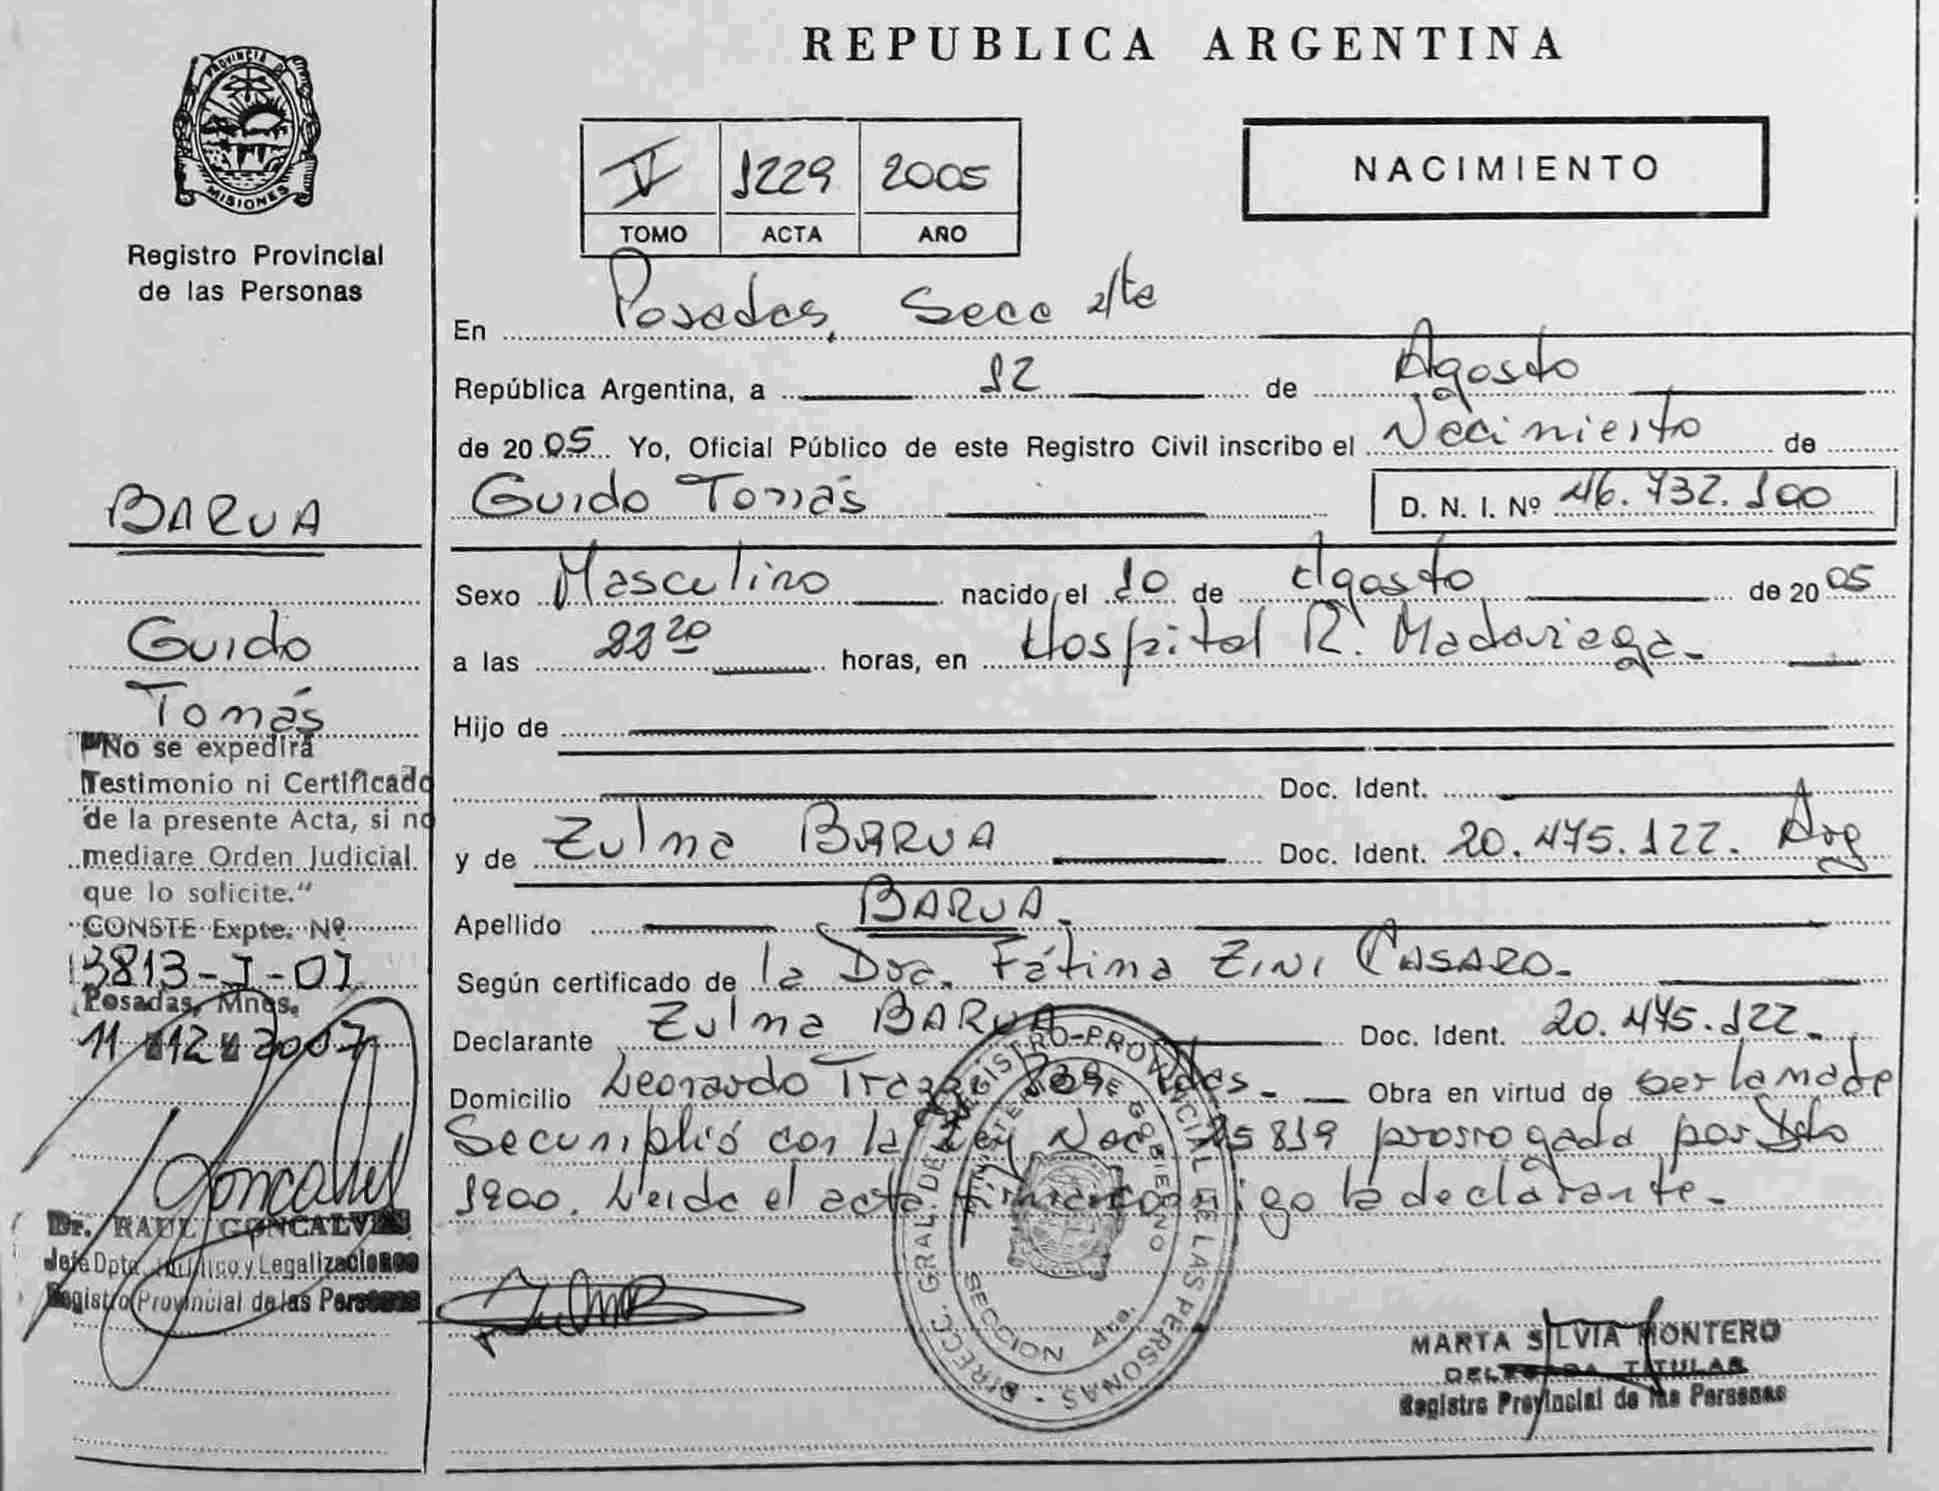 PROVINCIA DE
MISIONES
Registro Provincial
de las Personas
BARUA
Guido
Tomás
"No se expedirá
Testimonio ni Certificado
de la presente Acta, si no
mediare Orden Judicial
que lo solicite."
CONSTE Expte. Nº
3813-I-07
Posadas, Mnes.
11 12 2007
Dr. RAUL GONCALVES
Jefe Dpto. Jurídico y Legalizaciones
Registro Provincial de las Personas
REPUBLICA ARGENTINA
V 1229 2005
TOMO ACTA AÑO
NACIMIENTO
En Posadas, Secc 4ta
República Argentina, a 12 de Agosto
de 2005 Yo, Oficial Público de este Registro Civil inscribo el Nacimiento de
Guido Tomás D. N. I. Nº 46.732.100
Sexo Masculino nacido el 10 de Agosto de 2005
a las 22 20 horas, en Hospital R. Madariaga.
Hijo de
Doc. Ident.
y de Zulma BARUA Doc. Ident. 20.475.122. Arg
Apellido BARUA.
Según certificado de la Dra. Fátima ZINI CASARO.
Declarante Zulma BARUA Doc. Ident. 20.475.122.
Domicilio Leonardo Obra en virtud de ser la madre
Se cumplió con la Ley Nac 25819 prorrogada por Dto
1900. Leida el acta firma conmigo la declarante.
DIRECC. GRAL. DEL REGISTRO PROVINCIAL DE LAS PERSONAS
MINISTERIO DE GOBIERNO
SECCION 4ta.
MARTA SILVIA MONTERO
DELEGADA TITULAR
Registro Provincial de las Personas